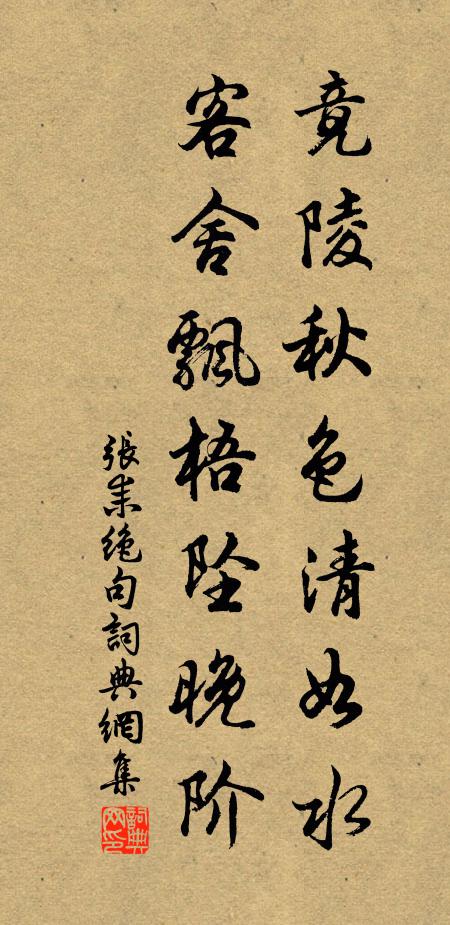 竟陵秋色清如水
客舍飄梧坠晚阶
張耒絶句詞典網集
詞典网印